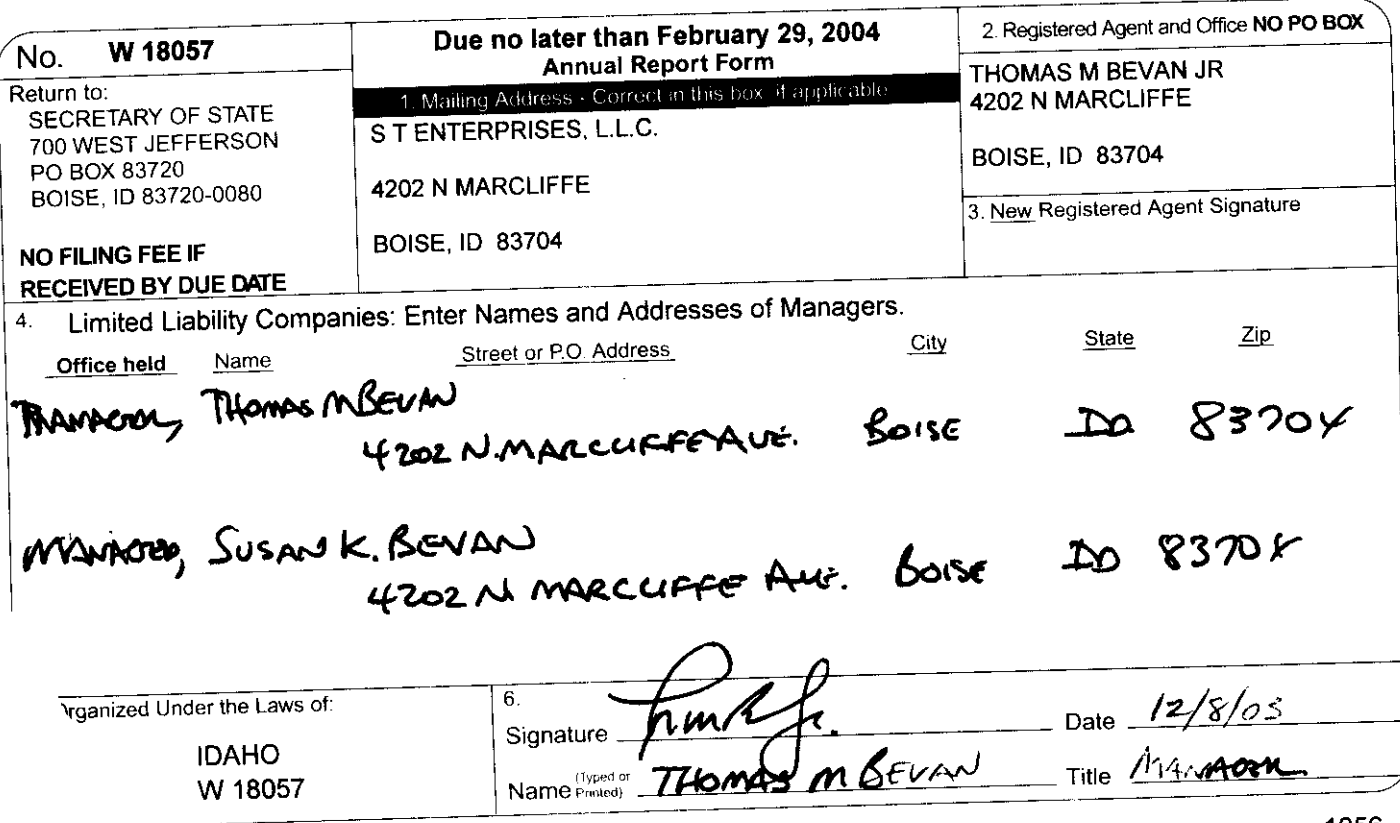 No. W 18057
Return to:
SECRETARY OF STATE
700 WEST JEFFERSON
PO BOX 83720
BOISE, ID 83720-0080
NO FILING FEE IF
RECEIVED BY DUE DATE
Due no later than February 29, 2004
Annual Report Form
1. Mailing Address - Correct in this box, if applicable
S T ENTERPRISES, L.L.C.
4202 N MARCLIFFE
BOISE, ID 83704
2. Registered Agent and Office NO PO BOX
THOMAS M BEVAN JR
4202 N MARCLIFFE
BOISE, ID 83704
3. New Registered Agent Signature
4. Limited Liability Companies: Enter Names and Addresses of Managers.
Office held Name Street or P.O. Address City State Zip
MANAGER, THOMAS M BEVAN
4202 N. MARCLIFFE AVE. BOISE ID 83704
MANAGER, SUSAN K. BEVAN
4202 N MARCLIFFE AVE. BOISE ID 83704
rganized Under the Laws of:
IDAHO
W 18057
6.
Signature Date 12/8/03
Name (Typed or Printed) THOMAS M BEVAN Title MANAGER